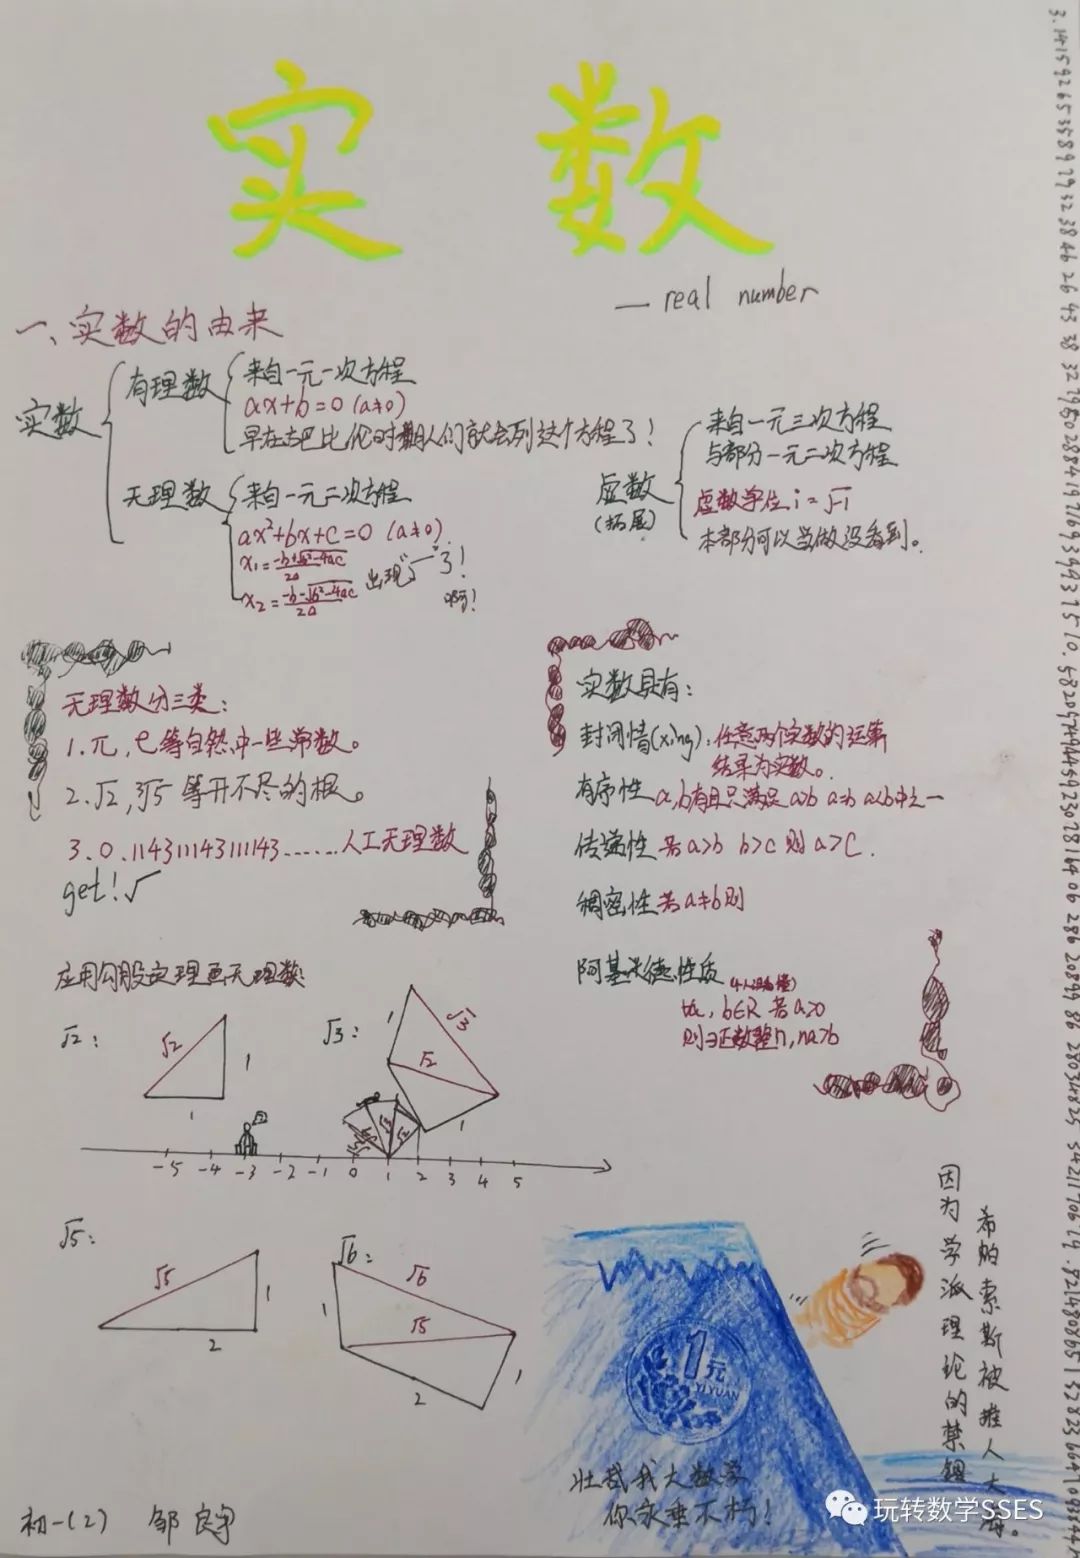 实 数
— real number
一、实数的由来
实数
有理数
来自一元一次方程
ax+b=0 (a≠0)
早在古巴比伦时期人们就会列这个方程了!
无理数
来自一元二次方程
ax²+bx+c=0 (a≠0)
x₁=(-b+√b²-4ac)/2a
x₂=(-b-√b²-4ac)/2a
出现"√"了!
啊!
虚数
(拓展)
来自一元三次方程
与部分一元二次方程
虚数单位 i=√-1
本部分可以当做没看到。
无理数分三类:
1.π,e等自然中一些常数。
2.√2,∛5 等开不尽的根。
3.0.114311143111143......人工无理数
get!√
实数具有:
封闭情(xing):任意两个实数的运算
结果为实数。
有序性 a,b有且只满足 a>b a=b a<b中之一
传递性 若a>b b>c 则a>c.
稠密性 若a≠b则
阿基米德性质
∀a,b∈R 若a>0
则∃正数整n,na>b
应用勾股定理画无理数:
√2:
√2
1
1
√3:
1
√3
√2
1
-5 -4 -3 -2 -1 0 1 2 3 4 5
√5:
√5
1
2
√6:
√6
1
√5
1
2
1元
YI YUAN
因为学派理论的禁锢
希帕索斯被推入大海。
壮哉我大数学
你永垂不朽!
初一(2) 邹良宇
玩转数学SSES